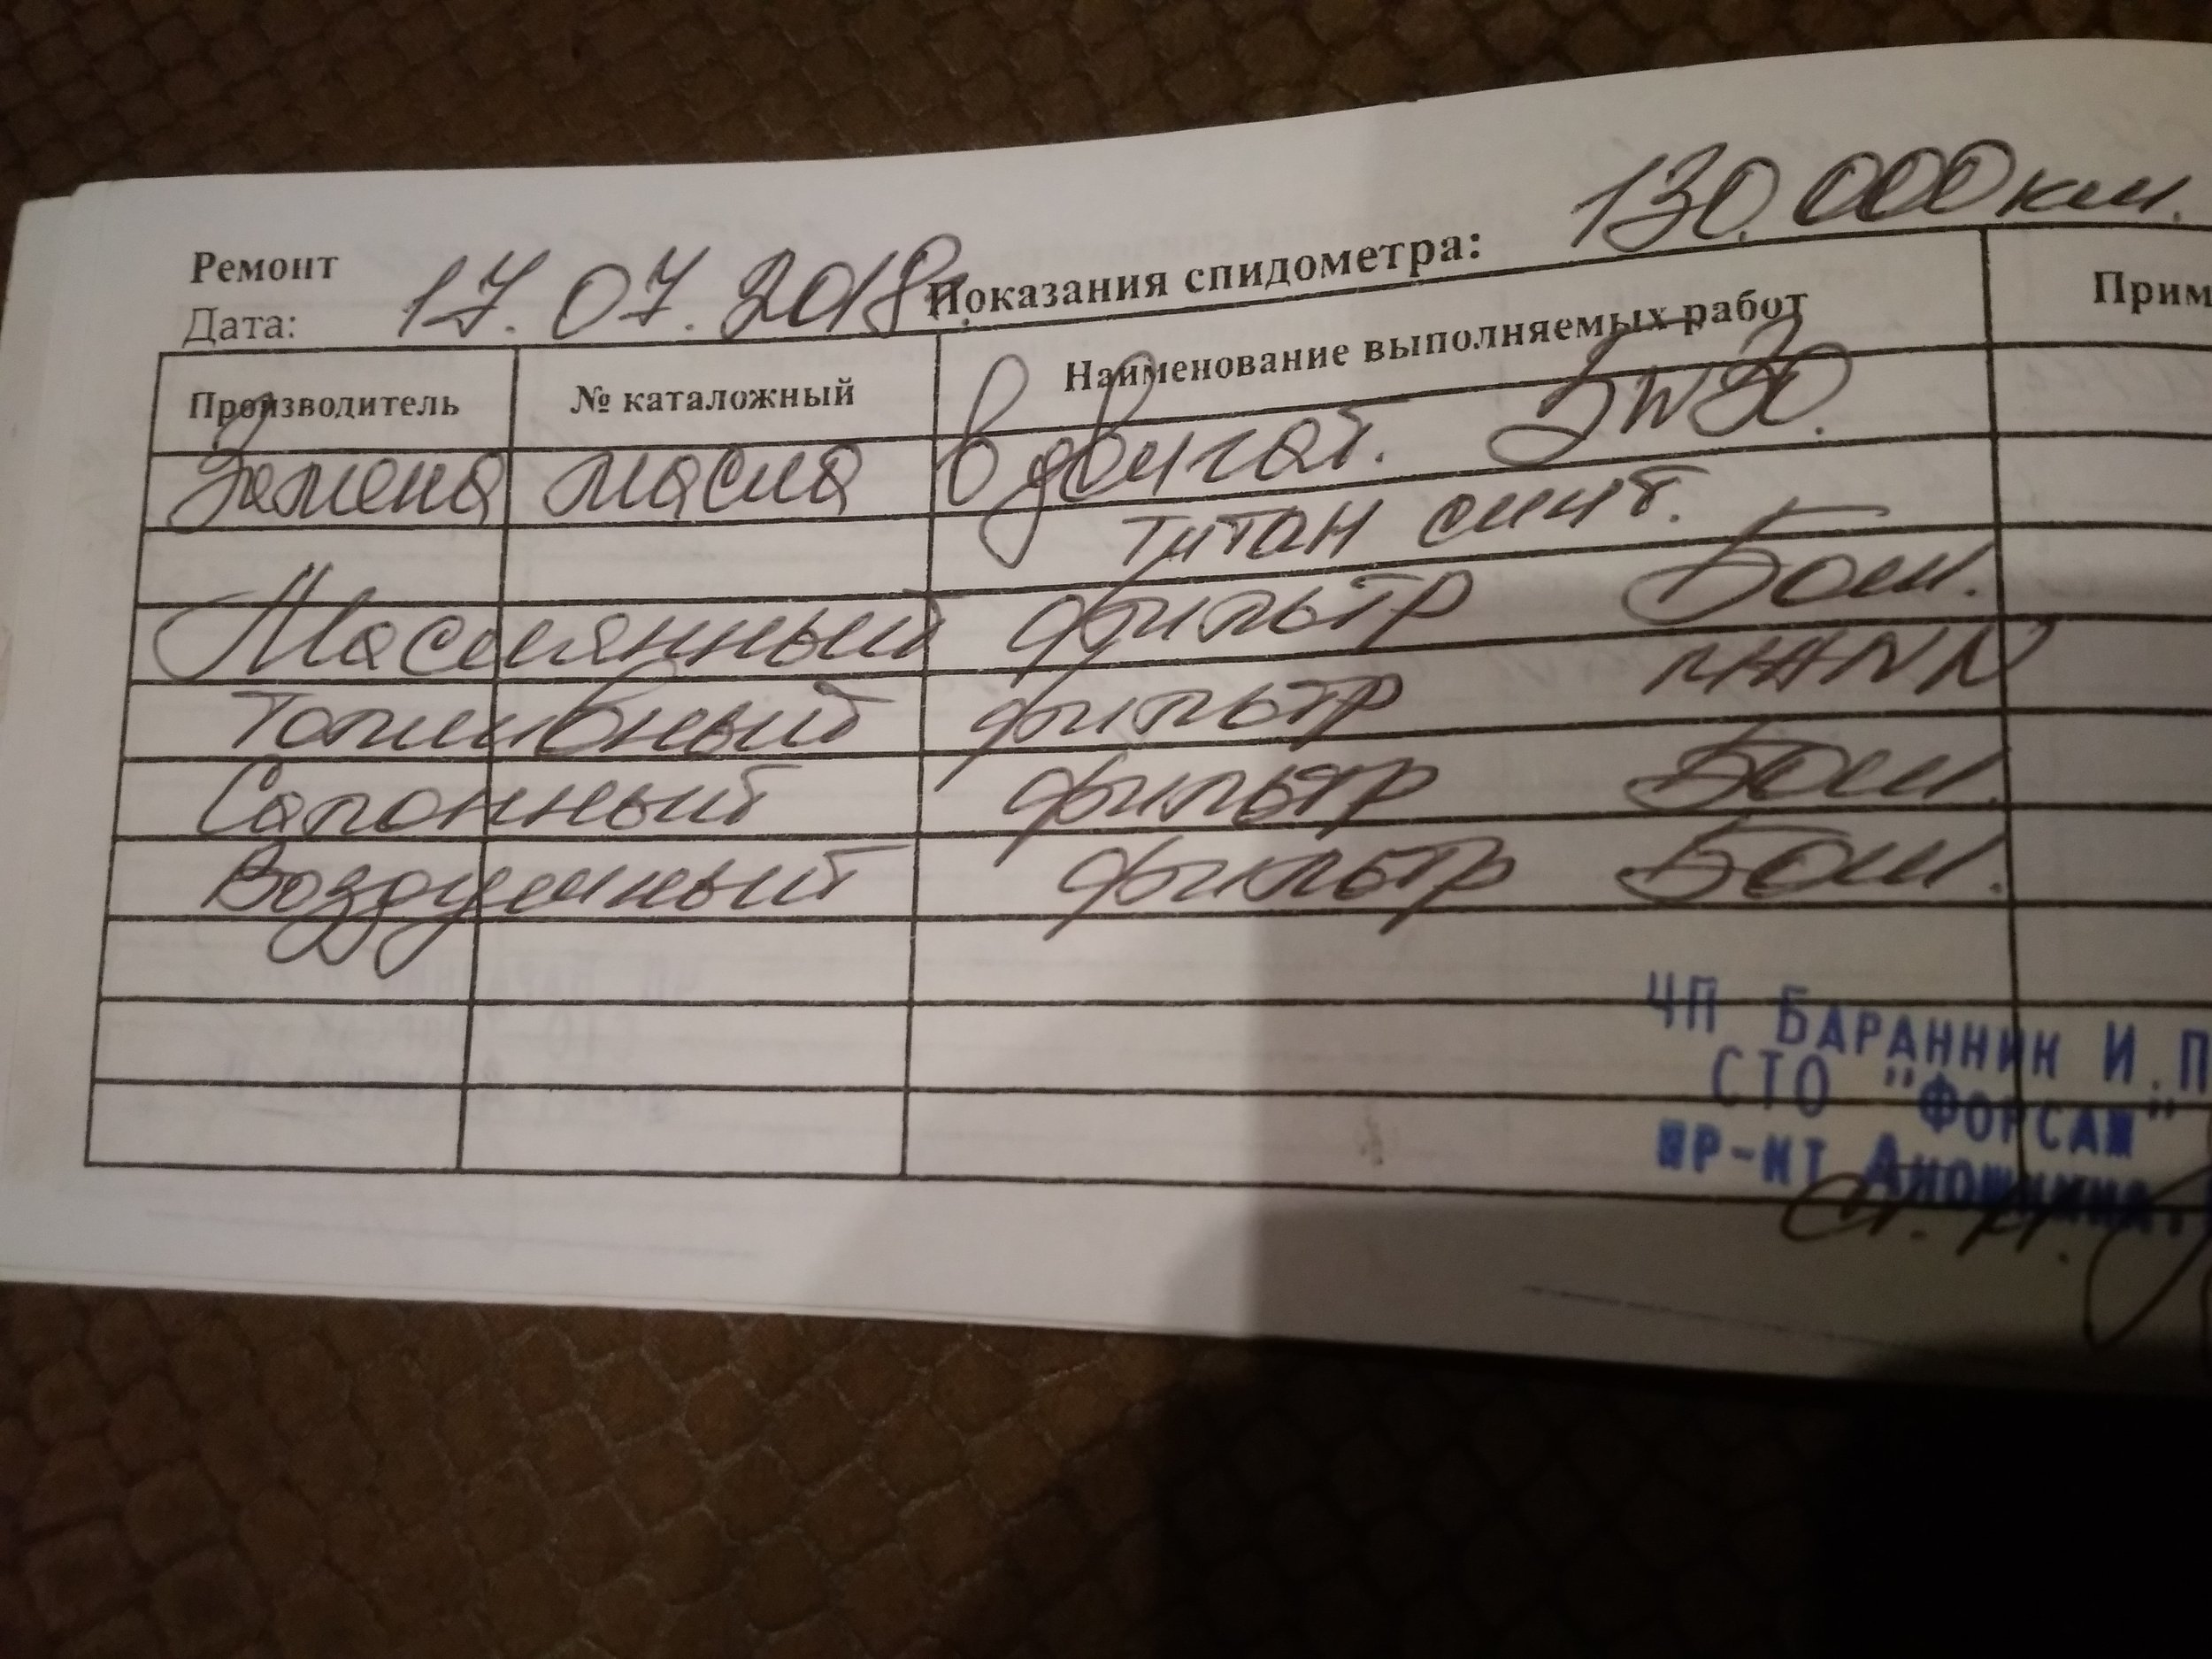 Ремонт
Дата: 17.07.2018г. Показания спидометра: 130.000км.
Производитель № каталожный Наименование выполняемых работ Прим
Замена масла в двигат. 5W30.
титан синт.
Масслянный фильтр Бош.
Топливный фильтр MANN
Салонный фильтр Бош.
Воздушный фильтр Бош.
ЧП БАРАННИК И.П
СТО "ФОРСАЖ"
ПР-КТ